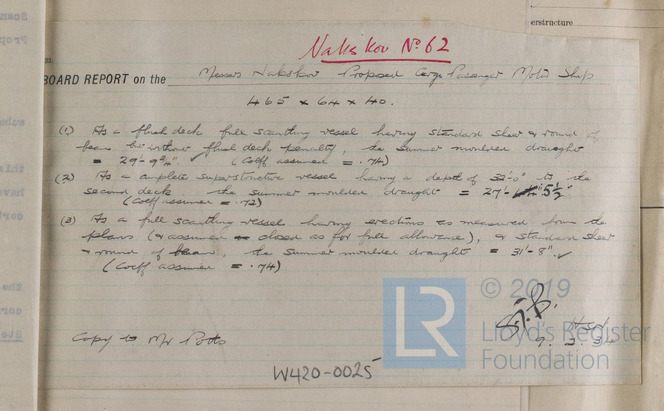 Nakskov Nº 62
BOARD REPORT on the Messrs Nakskov Proposed Cargo Passenger Motor Ship
465 x 64 x 40.
(1) As a flush deck full scantling vessel having standard sheer & round of
beam but without flush deck penalty, the summer moulded draught
= 29'-9¾" ✓ (Coeff assumed = .74)
(2) As a complete superstructure vessel having a depth of 32'-0" to the
second deck the summer moulded draught = 27'- 5½"
(Coeff assumed = .72)
(3) As a full scantling vessel having erections as measured from the
plans (& assumed closed as for full allowance), & standard sheer
& round of beam, the summer moulded draught = 31'-8". ✓
(Coeff assumed = .74)
Copy to Mr Potts
9. 3. 3
W420-0025
erstructure
© 2019
LR
Lloyd's Register
Foundation